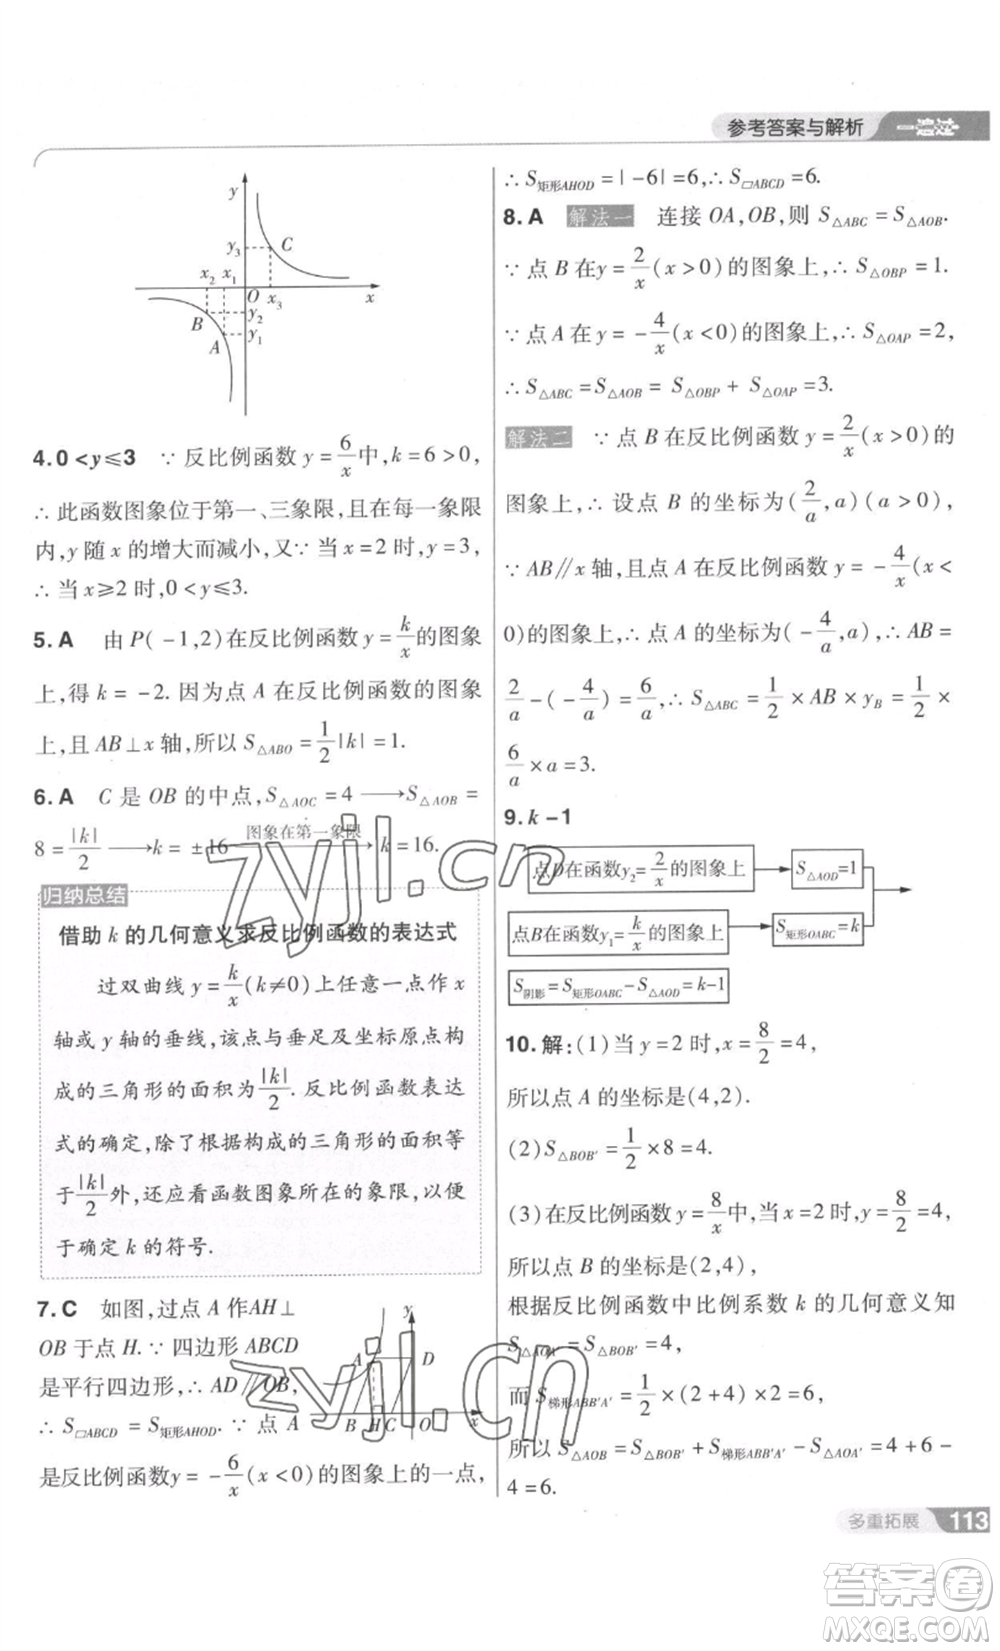 参考答案与解析 一遍过
y
y₃ C
x₂ x₁
O x₃ x
B y₂
A y₁
4.0<y≤3 ∵ 反比例函数 y=6/x中,k=6>0,
∴ 此函数图象位于第一、三象限,且在每一象限
内,y 随 x 的增大而减小,又∵ 当 x=2 时,y=3,
∴ 当 x≥2 时,0<y≤3.
5.A 由 P(-1,2)在反比例函数 y=k/x的图象
上,得 k=-2. 因为点 A 在反比例函数的图象
上,且 AB⊥x 轴,所以 S△ABO=1/2|k|=1.
6.A C 是 OB 的中点,S△AOC=4 ⟶ S△AOB=
8=|k|/2 ⟶ k=±16 图象在第一象限⟶ k=16.
归纳总结
借助 k 的几何意义求反比例函数的表达式
过双曲线 y=k/x(k≠0)上任意一点作 x
轴或 y 轴的垂线,该点与垂足及坐标原点构
成的三角形的面积为|k|/2. 反比例函数表达
式的确定,除了根据构成的三角形的面积等
于|k|/2外,还应看函数图象所在的象限,以便
于确定 k 的符号.
7.C 如图,过点 A 作AH⊥
OB 于点 H.∵ 四边形 ABCD
是平行四边形,∴ AD∥OB,
∴ S□ABCD=S矩形AHOD.∵ 点 A
是反比例函数y=-6/x(x<0)的图象上的一点,
y
A D
B H C O x
∴ S矩形AHOD=|-6|=6,∴ S□ABCD=6.
8.A 解法一 连接 OA,OB,则 S△ABC=S△AOB.
∵ 点 B 在y=2/x(x>0)的图象上,∴ S△OBP=1.
∵ 点A在y=-4/x(x<0)的图象上,∴ S△OAP=2,
∴ S△ABC=S△AOB=S△OBP+S△OAP=3.
解法二 ∵ 点 B 在反比例函数 y=2/x(x>0)的
图象上,∴ 设点 B 的坐标为(2/a,a)(a>0),
∵ AB∥x 轴,且点 A 在反比例函数 y=-4/x(x<
0)的图象上,∴ 点 A 的坐标为(-4/a,a),∴ AB=
2/a-(-4/a)=6/a,∴ S△ABC=1/2×AB×yB=1/2×
6/a×a=3.
9.k-1
点D在函数y₂=2/x的图象上 ⟶ S△AOD=1
点B在函数y₁=k/x的图象上 ⟶ S矩形OABC=k
S阴影=S矩形OABC-S△AOD=k-1
10.解:(1)当 y=2 时,x=8/2=4,
所以点 A 的坐标是(4,2).
(2)S△BOB′=1/2×8=4.
(3)在反比例函数 y=8/x中,当 x=2时,y=8/2=4,
所以点 B 的坐标为(2,4),
根据反比例函数中比例系数 k 的几何意义知
S△AOA′=S△BOB′=4,
而 S梯形ABB′A′=1/2×(2+4)×2=6,
所以 S△AOB=S△BOB′+S梯形ABB′A′-S△AOA′=4+6-
4=6.
zyjl.cn
zyjl.cn
多重拓展 113
答案圈
MXQE.COM